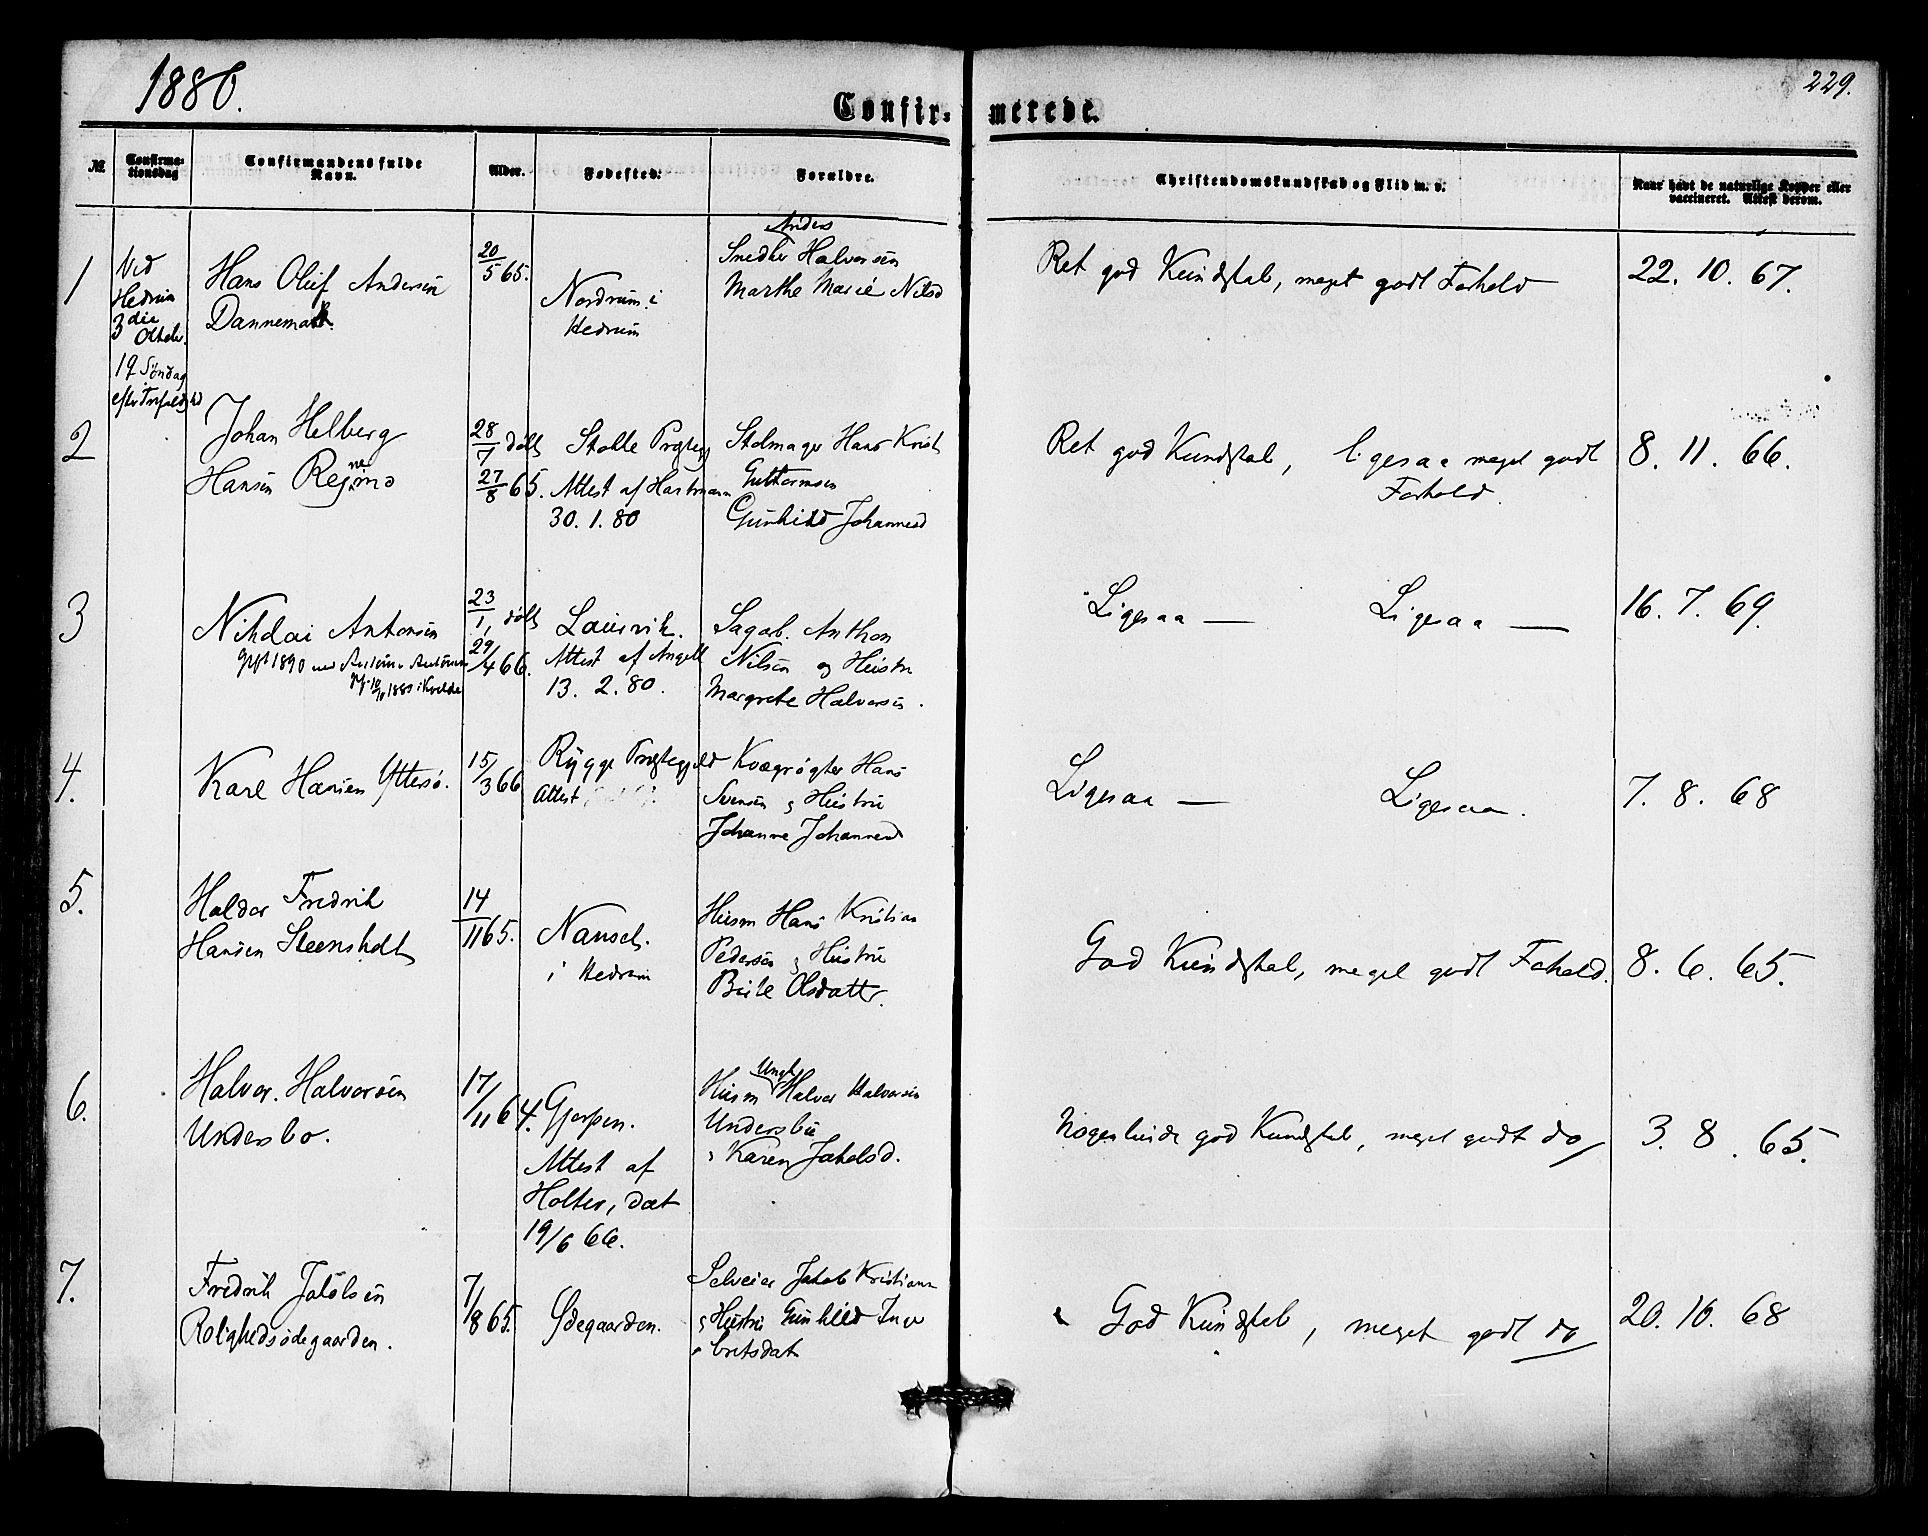 1880.
229.
Confirmerede.
№.
Confirma-
tionsdag
Confirmandens fulde
Navn.
Alder.
Fødested.
Forældre.
Christendomskundskab og Flid m. v.
Naar havt de naturlige Kopper eller
vaccineret. Attest derom.
1
Ved
Hedrum
3die
Oktober.
19 Søndag
efter Trefoldighed
Hans Oluf Andersen
Dannemark.
20/5 65.
Nordrum i
Hedrum
Anders
Snedker Halvorsen
Marthe Marie Nilsd
Ret god Kundskab, meget godt Forhold
22. 10. 67.
2
Johan Helberg
Hansen
28/7 døbt
27/8 65.
Stokke Prgjeld
Attest af Hartmann
30. 1. 80
Hans Krist
Guttormsen
Gunhild Johannesd
Ret god Kundskab, ligesaa meget godt
Forhold.
8. 11. 66.
3
Nikolai Antonsen
gift 1890 med
23/1, døbt
29/4 66.
Laurvik.
Attest af Angell
13. 2. 80.
Sagarb. Anthon
Nilsen og Hustru
Margrete Halvorsen.
Ligesaa — Ligesaa —
16. 7. 69.
4.
Karl Hansen Yttersø.
15/3 66
Rygge Præstegjeld
Attest
Kvægrøgter Hans
Svensen & Hustru
Johanne Johannesd
Ligesaa — Ligesaa.
7. 8. 68
5.
Haldor Fredrik
Hansen Steensholt
14/11 65.
Nanset.
i Hedrum
Husm Hans Kristian
Pedersen & Hustru
Birte Olsdatter.
God Kundskab, meget godt Fohold.
8. 6. 65.
6.
Halvor. Halvorsen
Undersbo.
17/11 64.
Gjerpen.
Attest af
Holter, dat
19/6 66.
Ungk
Husm Halvor Halvorsen
Undersbu
& Karen Jakobsd.
Nogenlunde god Kundskab, meget godt do
3. 8. 65.
7.
Fredrik Jakobsen
Rolighedsødegaarden.
7/8 65.
Ødegaarden.
Selveier Jakob Kristians
& Hustru Gunhild Inge
bretsdat
God Kundskab, meget godt do
20. 10. 68